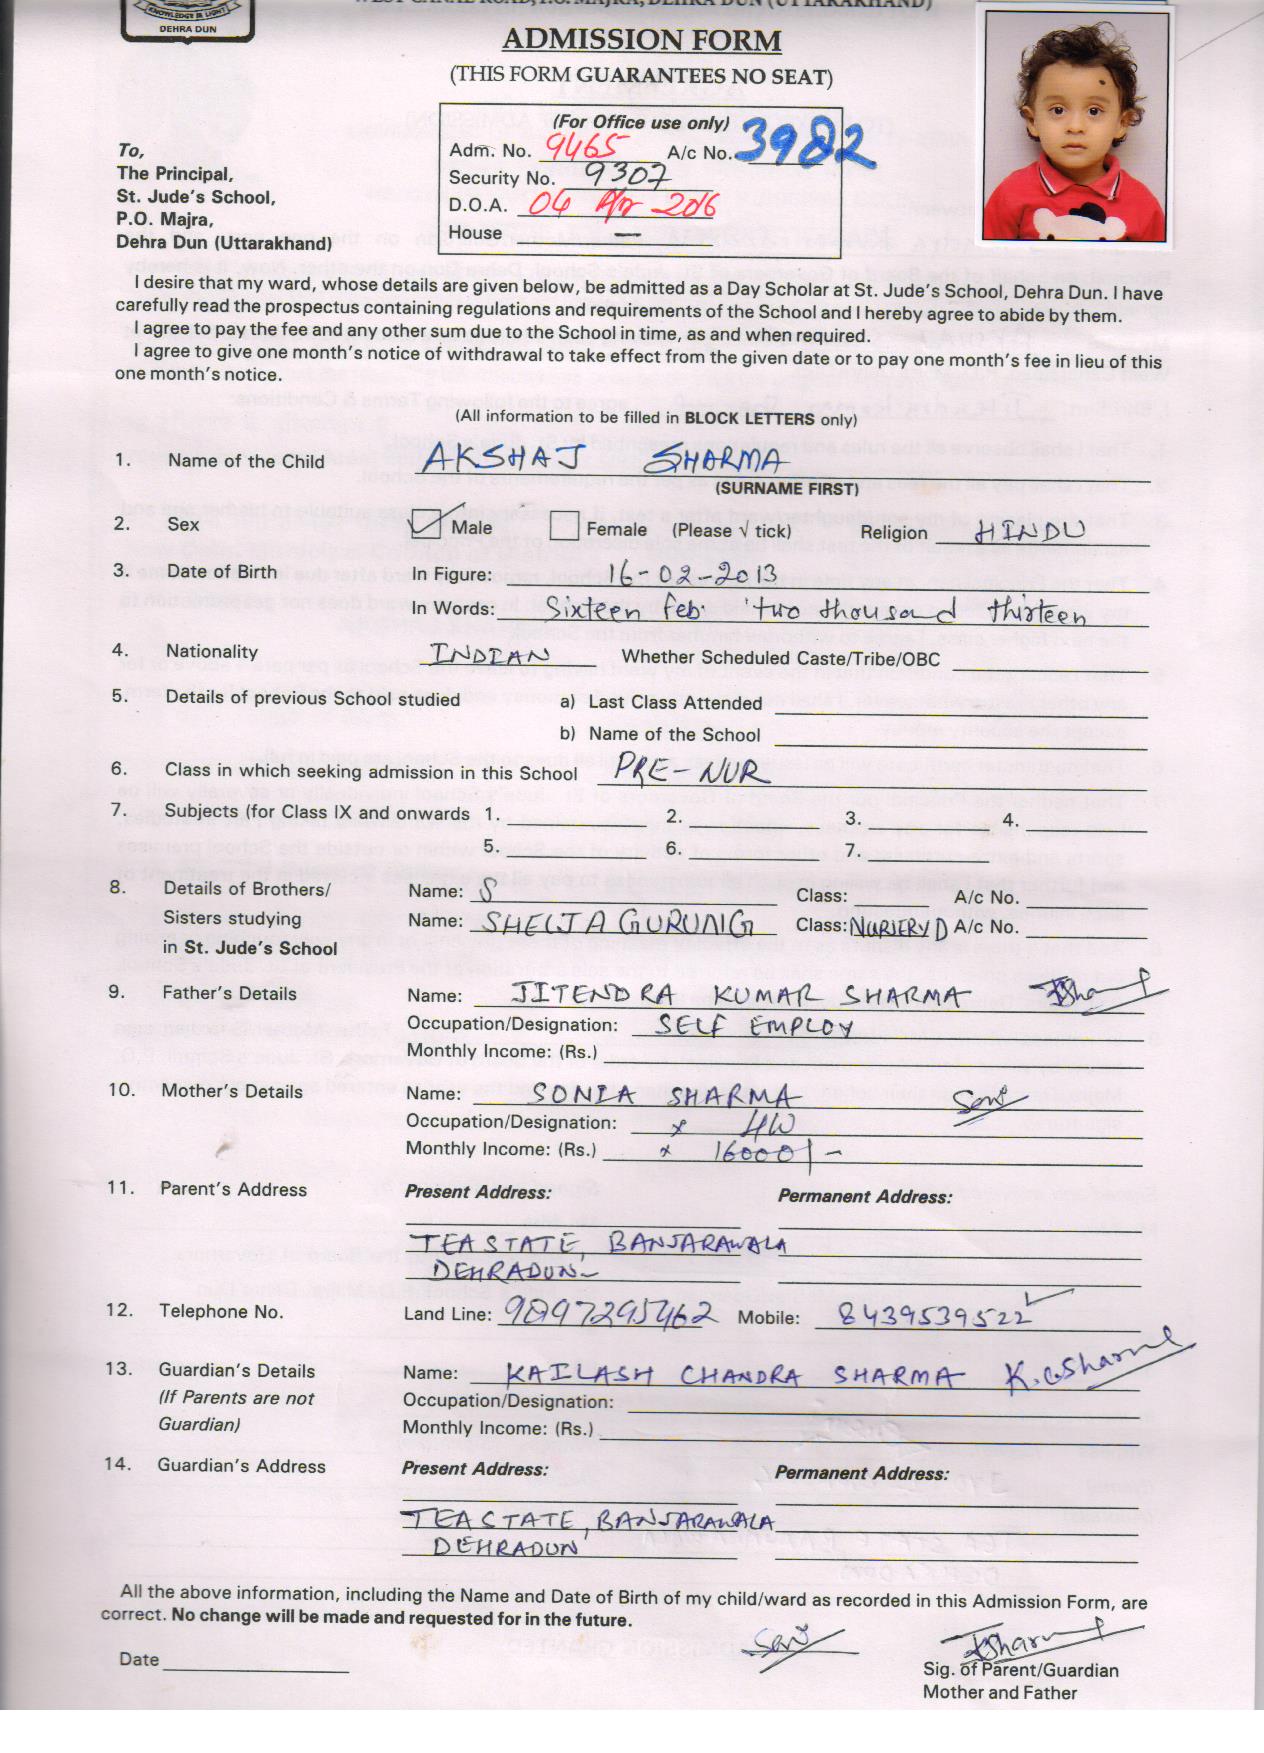 KNOWLEDGE IS LIGHT
DEHRA DUN
WEST CANAL ROAD, P.O. MAJRA, DEHRA DUN (UTTARAKHAND)
ADMISSION FORM
(THIS FORM GUARANTEES NO SEAT)
(For Office use only)
Adm. No. 9465 A/c No. 3982
Security No. 9307
D.O.A. 04 Apr 2016
House —
To,
The Principal,
St. Jude's School,
P.O. Majra,
Dehra Dun (Uttarakhand)
I desire that my ward, whose details are given below, be admitted as a Day Scholar at St. Jude's School, Dehra Dun. I have
carefully read the prospectus containing regulations and requirements of the School and I hereby agree to abide by them.
I agree to pay the fee and any other sum due to the School in time, as and when required.
I agree to give one month's notice of withdrawal to take effect from the given date or to pay one month's fee in lieu of this
one month's notice.
(All information to be filled in BLOCK LETTERS only)
1. Name of the Child AKSHAJ SHARMA
(SURNAME FIRST)
2. Sex Male Female (Please √ tick) Religion HINDU
3. Date of Birth In Figure: 16-02-2013
In Words: Sixteen Feb two thousand thirteen
4. Nationality INDIAN Whether Scheduled Caste/Tribe/OBC
5. Details of previous School studied a) Last Class Attended
b) Name of the School
6. Class in which seeking admission in this School PRE-NUR
7. Subjects (for Class IX and onwards 1. 2. 3. 4.
5. 6. 7.
8. Details of Brothers/ Name: S Class: A/c No.
Sisters studying Name: SHELJA GURUNG Class: NURSERY D A/c No.
in St. Jude's School
9. Father's Details Name: JITENDRA KUMAR SHARMA JSharma
Occupation/Designation: SELF EMPLOY
Monthly Income: (Rs.)
10. Mother's Details Name: SONIA SHARMA
Occupation/Designation: x HW
Monthly Income: (Rs.) x 16000/-
11. Parent's Address Present Address: Permanent Address:
TEASTATE, BANJARAWALA
DEHRADUN-
12. Telephone No. Land Line: 9897295462 Mobile: 8439539522
13. Guardian's Details Name: KAILASH CHANDRA SHARMA K.C.Sharma
(If Parents are not Occupation/Designation:
Guardian) Monthly Income: (Rs.)
14. Guardian's Address Present Address: Permanent Address:
TEASTATE, BANJARAWALA
DEHRADUN
All the above information, including the Name and Date of Birth of my child/ward as recorded in this Admission Form, are
correct. No change will be made and requested for in the future.
JSharma
Date
Sig. of Parent/Guardian
Mother and Father